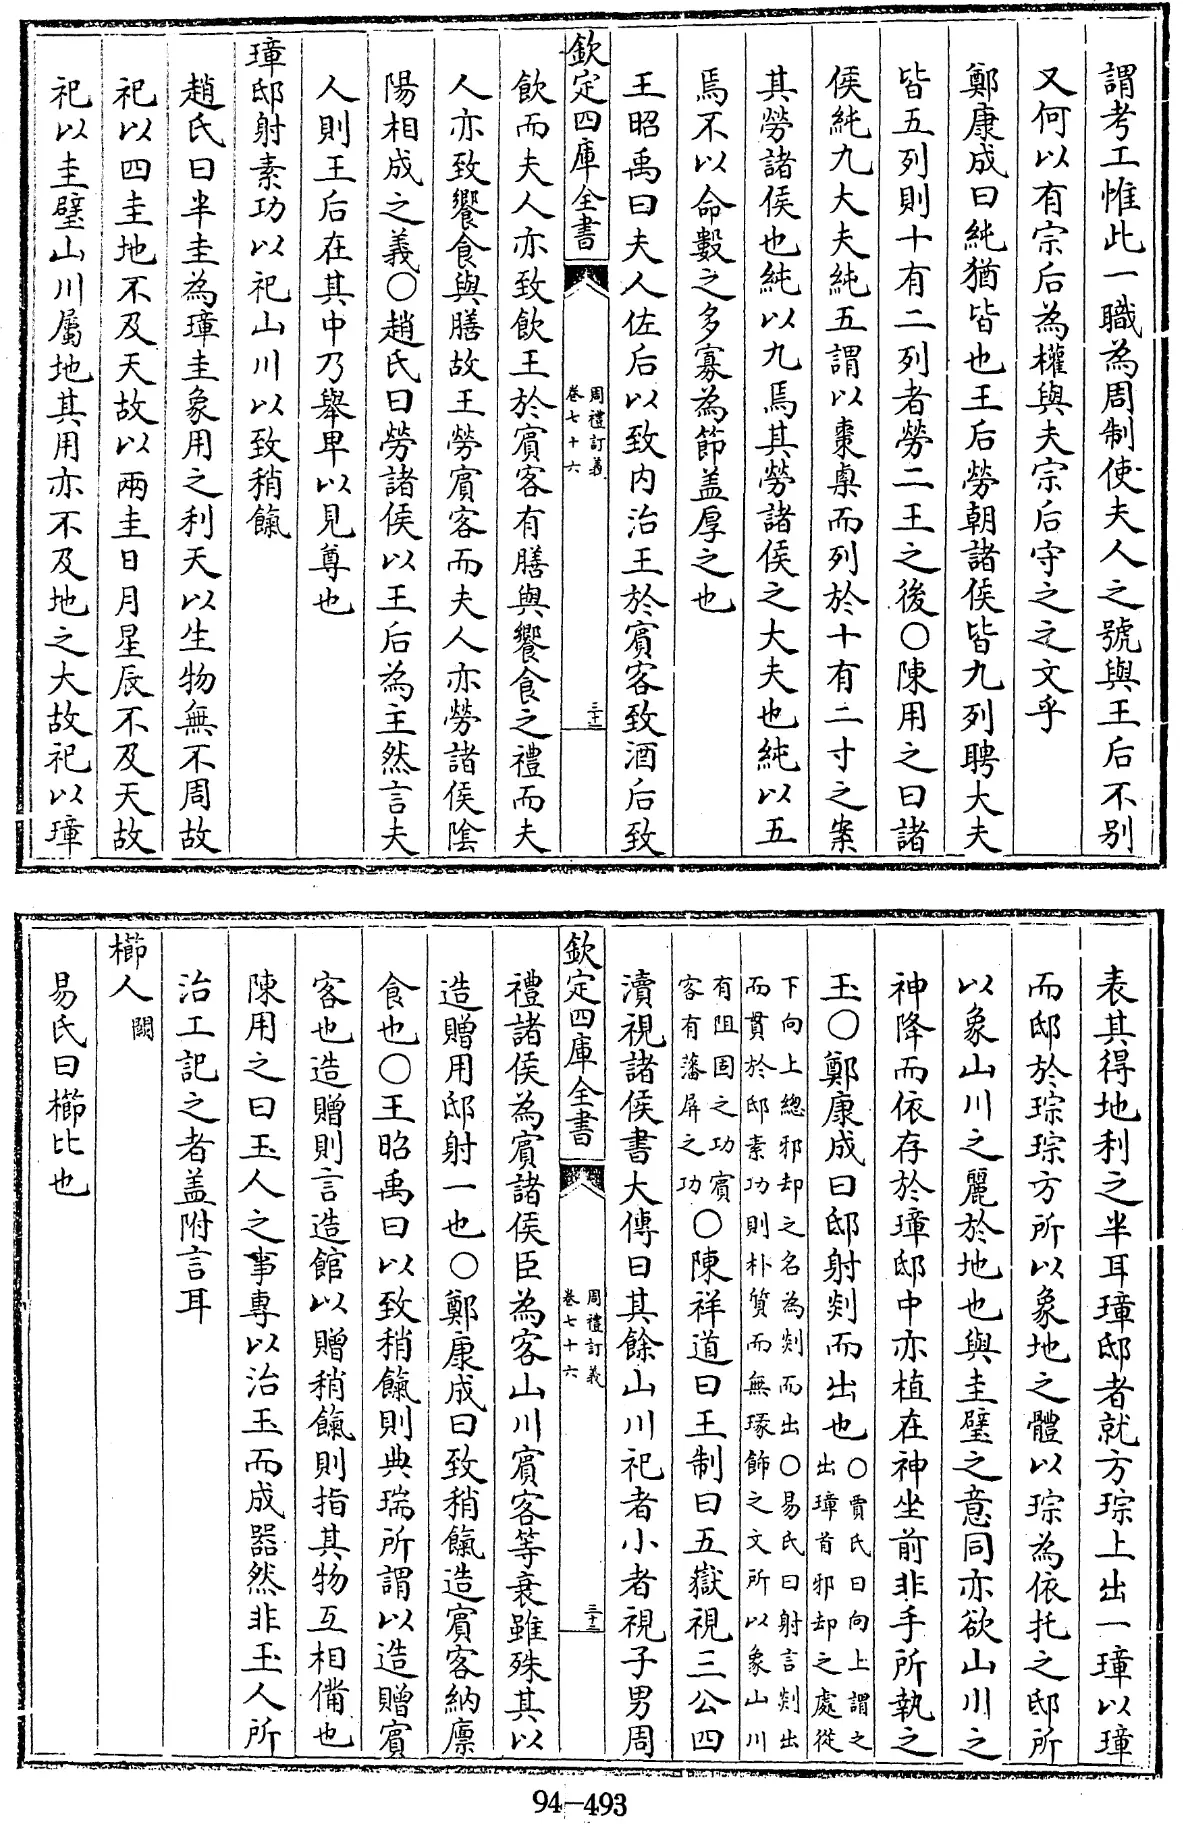 謂考工惟此一職為周制使夫人之號與王后不别
又何以有宗后為權與夫宗后守之之文乎
鄭康成曰純猶皆也王后勞朝諸侯皆九列聘大夫
皆五列則十有二列者勞二王之後○陳用之曰諸
侯純九大夫純五謂以棗㮚而列於十有二寸之案
其勞諸侯也純以九焉其勞諸侯之大夫也純以五
焉不以命數之多寡為節盖厚之也
王昭禹曰夫人佐后以致内治王於賓客致酒后致
欽定四庫全書
周禮訂義
卷七十六
三十二
飲而夫人亦致飲王於賓客有膳與饗食之禮而夫
人亦致饗食與膳故王勞賓客而夫人亦勞諸侯陰
陽相成之義○趙氏曰勞諸侯以王后為主然言夫
人則王后在其中乃舉卑以見尊也
璋邸射素功以祀山川以致稍餼
趙氏曰半圭為璋圭象用之利天以生物無不周故
祀以四圭地不及天故以兩圭日月星辰不及天故
祀以圭璧山川屬地其用亦不及地之大故祀以璋
表其得地利之半耳璋邸者就方琮上出一璋以璋
而邸於琮琮方所以象地之體以琮為依托之邸所
以象山川之麗於地也與圭璧之意同亦欲山川之
神降而依存於璋邸中亦植在神坐前非手所執之
玉○鄭康成曰邸射剡而出也○賈氏曰向上謂之
出璋首邪却之處從
下向上總邪却之名為剡而出○易氏曰射言剡出
而貫於邸素功則朴質而無瑑飾之文所以象山川
有阻固之功賓
客有藩屏之功○陳祥道曰王制曰五嶽視三公四
瀆視諸侯書大傳曰其餘山川祀者小者視子男周
欽定四庫全書
周禮訂義
卷七十六
三十三
禮諸侯為賓諸侯臣為客山川賓客等衰雖殊其以
造贈用邸射一也○鄭康成曰致稍餼造賓客納廪
食也○王昭禹曰以致稍餼則典瑞所謂以造贈賓
客也造贈則言造館以贈稍餼則指其物互相備也
陳用之曰玉人之事專以治玉而成器然非玉人所
治工記之者盖附言耳
櫛人闕
易氏曰櫛比也
94-493